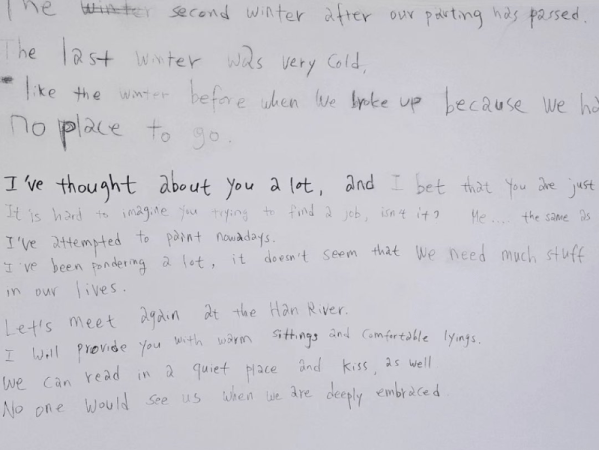 The winter second winter after our parting has passed.
The last winter was very cold.
like the winter before when we broke up because we ha
no place to go.
I've thought about you a lot, and I bet that you are just
It is hard to imagine you trying to find a job, isn't it? Me... the same as
I've attempted to paint nowadays.
I've been pondering a lot, it doesn't seem that we need much stuff
in our lives.
Let's meet again at the Han River.
I will provide you with warm sittings and comfortable lyings.
We can read in a quiet place and kiss, as well
No one would see us when we are deeply embraced.